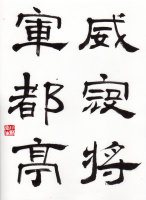 威寇將
軍都亭